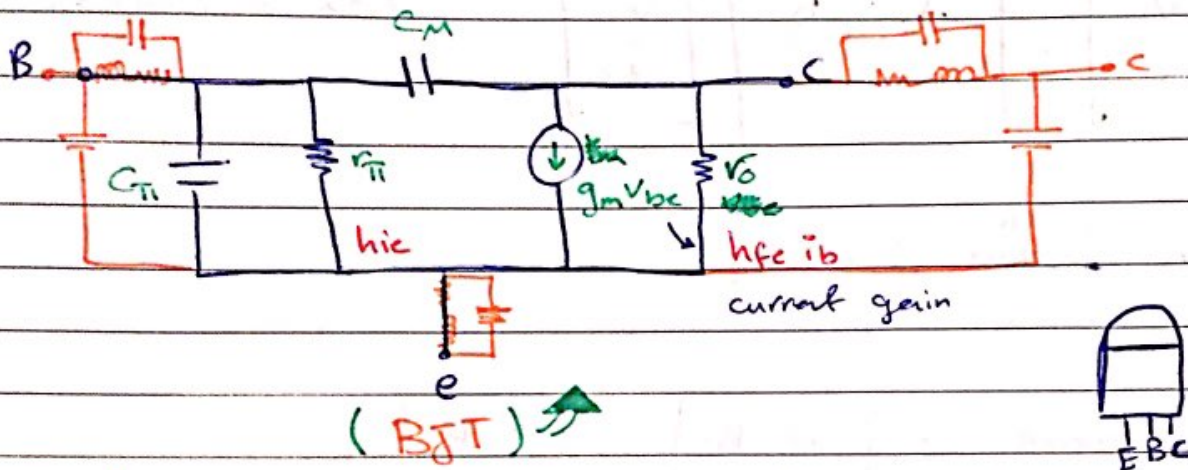 C_M
B
C
C
C_π
r_π
g_m V_be
r_o
hie
hfe ib
current gain
e
(BJT)
E B C